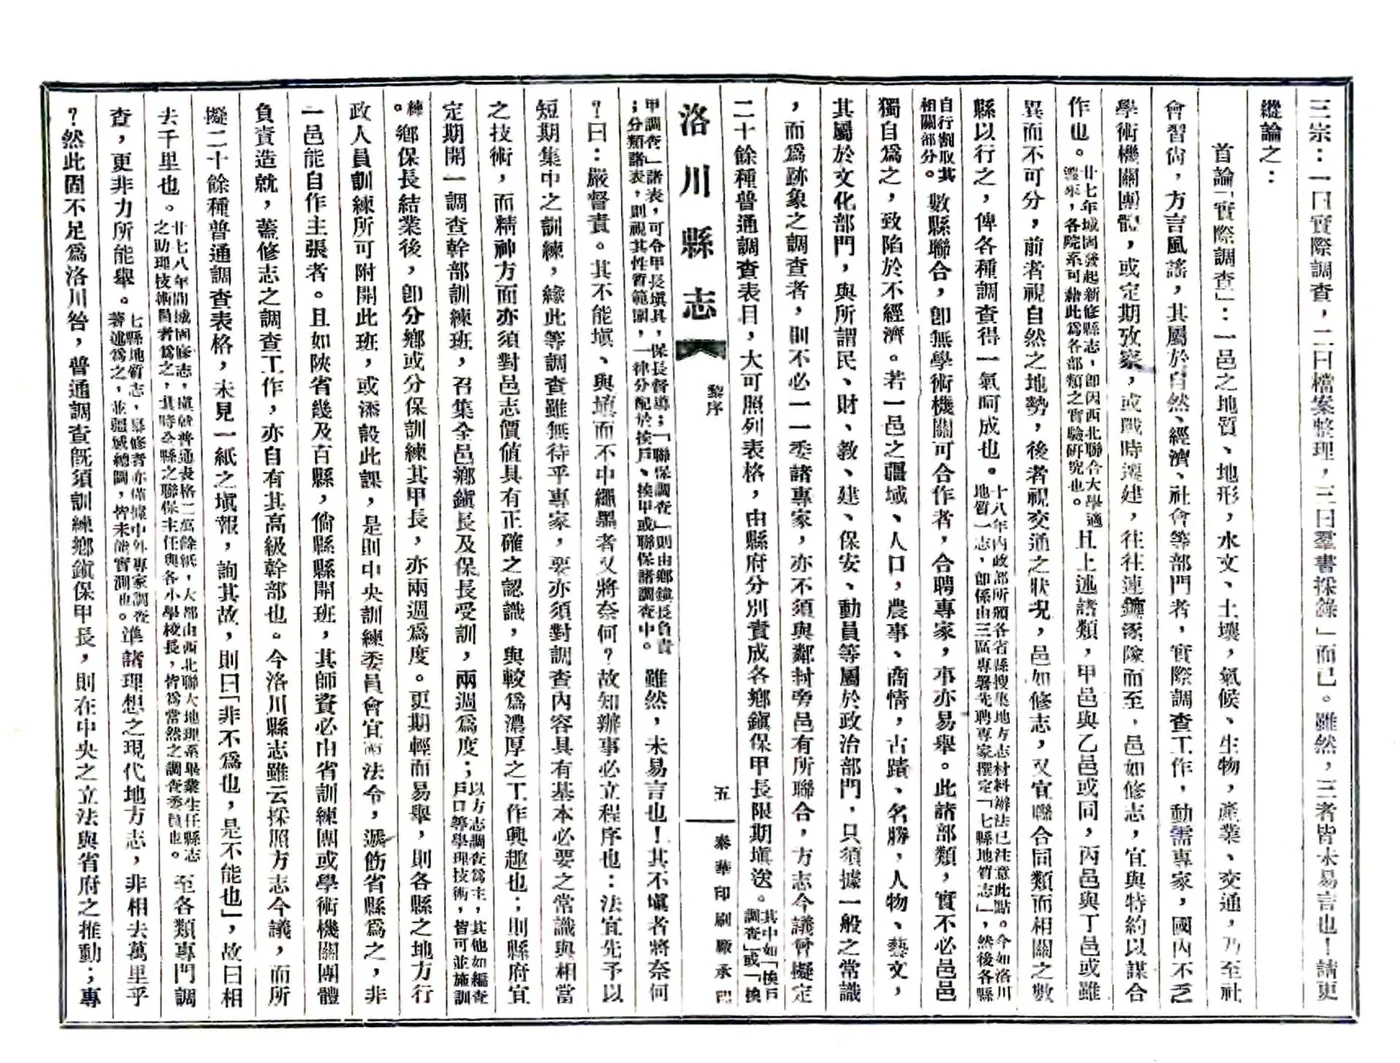 三宗：一曰實際調查，二曰檔案整理，三曰羣書採錄」而已。雖然，三者皆未易言也！請更
縱論之：
首論「實際調查」：一邑之地質、地形，水文、土壤，氣候、生物，產業、交通，乃至社
會習尚，方言風謠，其屬於自然、經濟、社會等部門者，實際調查工作，動需專家，國內不乏
學術機關團體，或定期攷察，或戰時遷建，往往連鑣逐隊而至，邑如修志，宜與特約以謀合
作也。
廿七年城固發起新修縣志，卽因西北聯合大學適
遷來，各院系可藉此為各部類之實驗研究也。
且上述諸類，甲邑與乙邑或同，丙邑與丁邑或雖
異而不可分，前者視自然之地勢，後者視交通之狀況，邑如修志，又宜聯合同類而相關之數
縣以行之，俾各種調查得一氣呵成也。
十八年內政部所頒各省縣搜集地方志材料辦法已注意此點。今如洛川
地質一志，卽係由三區專署先聘專家撰定「七縣地質志」，然後各縣
自行割取其
相關部分。
數縣聯合，卽無學術機關可合作者，合聘專家，事亦易舉。此諸部類，實不必邑邑
獨自為之，致陷於不經濟。若一邑之疆域、人口，農事、商情，古蹟、名勝，人物、藝文，
其屬於文化部門，與所謂民、財、教、建、保安、動員等屬於政治部門，只須據一般之常識
，而為跡象之調查者，則不必一一委諸專家，亦不須與鄰封旁邑有所聯合，方志今議曾擬定
二十餘種普通調查表目，大可照列表格，由縣府分別責成各鄉鎮保甲長限期塡送。
其中如「挨戶
調查」或「挨
洛川縣志
黎序
五
泰華印刷廠承印
甲調查」諸表，可令甲長塡具，保長督導；「聯保調查」則由鄉鎮長負責
；分類諸表，則視其性質範圍，一律分配於挨戶、挨甲或聯保諸調查中。
雖然，未易言也！其不塡者將奈何
？曰：嚴督責。其不能塡、與塡而不中繩墨者又將奈何？故知辦事必立程序也：法宜先予以
短期集中之訓練，緣此等調查雖無待乎專家，要亦須對調查內容具有基本必要之常識與相當
之技術，而精神方面亦須對邑志價值具有正確之認識，與較為濃厚之工作興趣也；則縣府宜
定期開一調查幹部訓練班，召集全邑鄉鎮長及保長受訓，兩週為度；
以方志調查為主，其他如編查
戶口等學理技術，皆可並施訓
練。
鄉保長結業後，卽分鄉或分保訓練其甲長，亦兩週為度。更期輕而易舉，則各縣之地方行
政人員訓練所可附開此班，或添設此課，是則中央訓練委員會宜著法令，遞飭省縣為之，非
一邑能自作主張者。且如陝省幾及百縣，倘縣縣開班，其師資必由省訓練團或學術機關團體
負責造就，蓋修志之調查工作，亦自有其高級幹部也。今洛川縣志雖云採照方志今議，而所
擬二十餘種普通調查表格，未見一紙之塡報，詢其故，則曰「非不為也，是不能也」，故曰相
去千里也。
廿七八年間城固修志，塡就普通表格二萬餘紙，大都由西北聯大地理系畢業生任縣志
之助理技術員者為之，其時全縣之聯保主任與各小學校長，皆為當然之調查委員也。
至各類專門調
查，更非力所能舉。
七縣地質志，纂修者亦僅據中外專家調查
著述為之，並疆域總圖，皆未能實測也。
準諸理想之現代地方志，非相去萬里乎
？然此固不足為洛川咎，普通調查旣須訓練鄉鎮保甲長，則在中央之立法與省府之推動；專